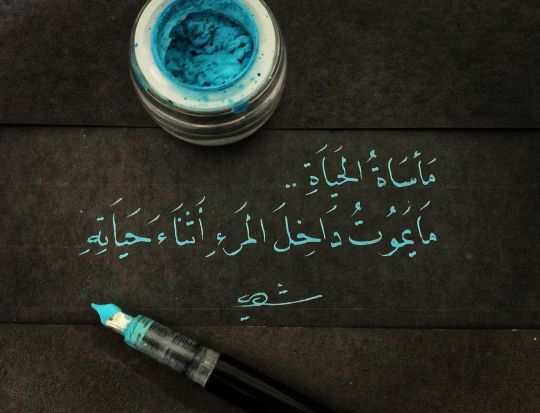 مَأسَاةُ الحَيَاَةِ ..
مَايَمُوتُ دَاخِلَ المَرءِ أَثْنَاءَ حَيَاتِهِ